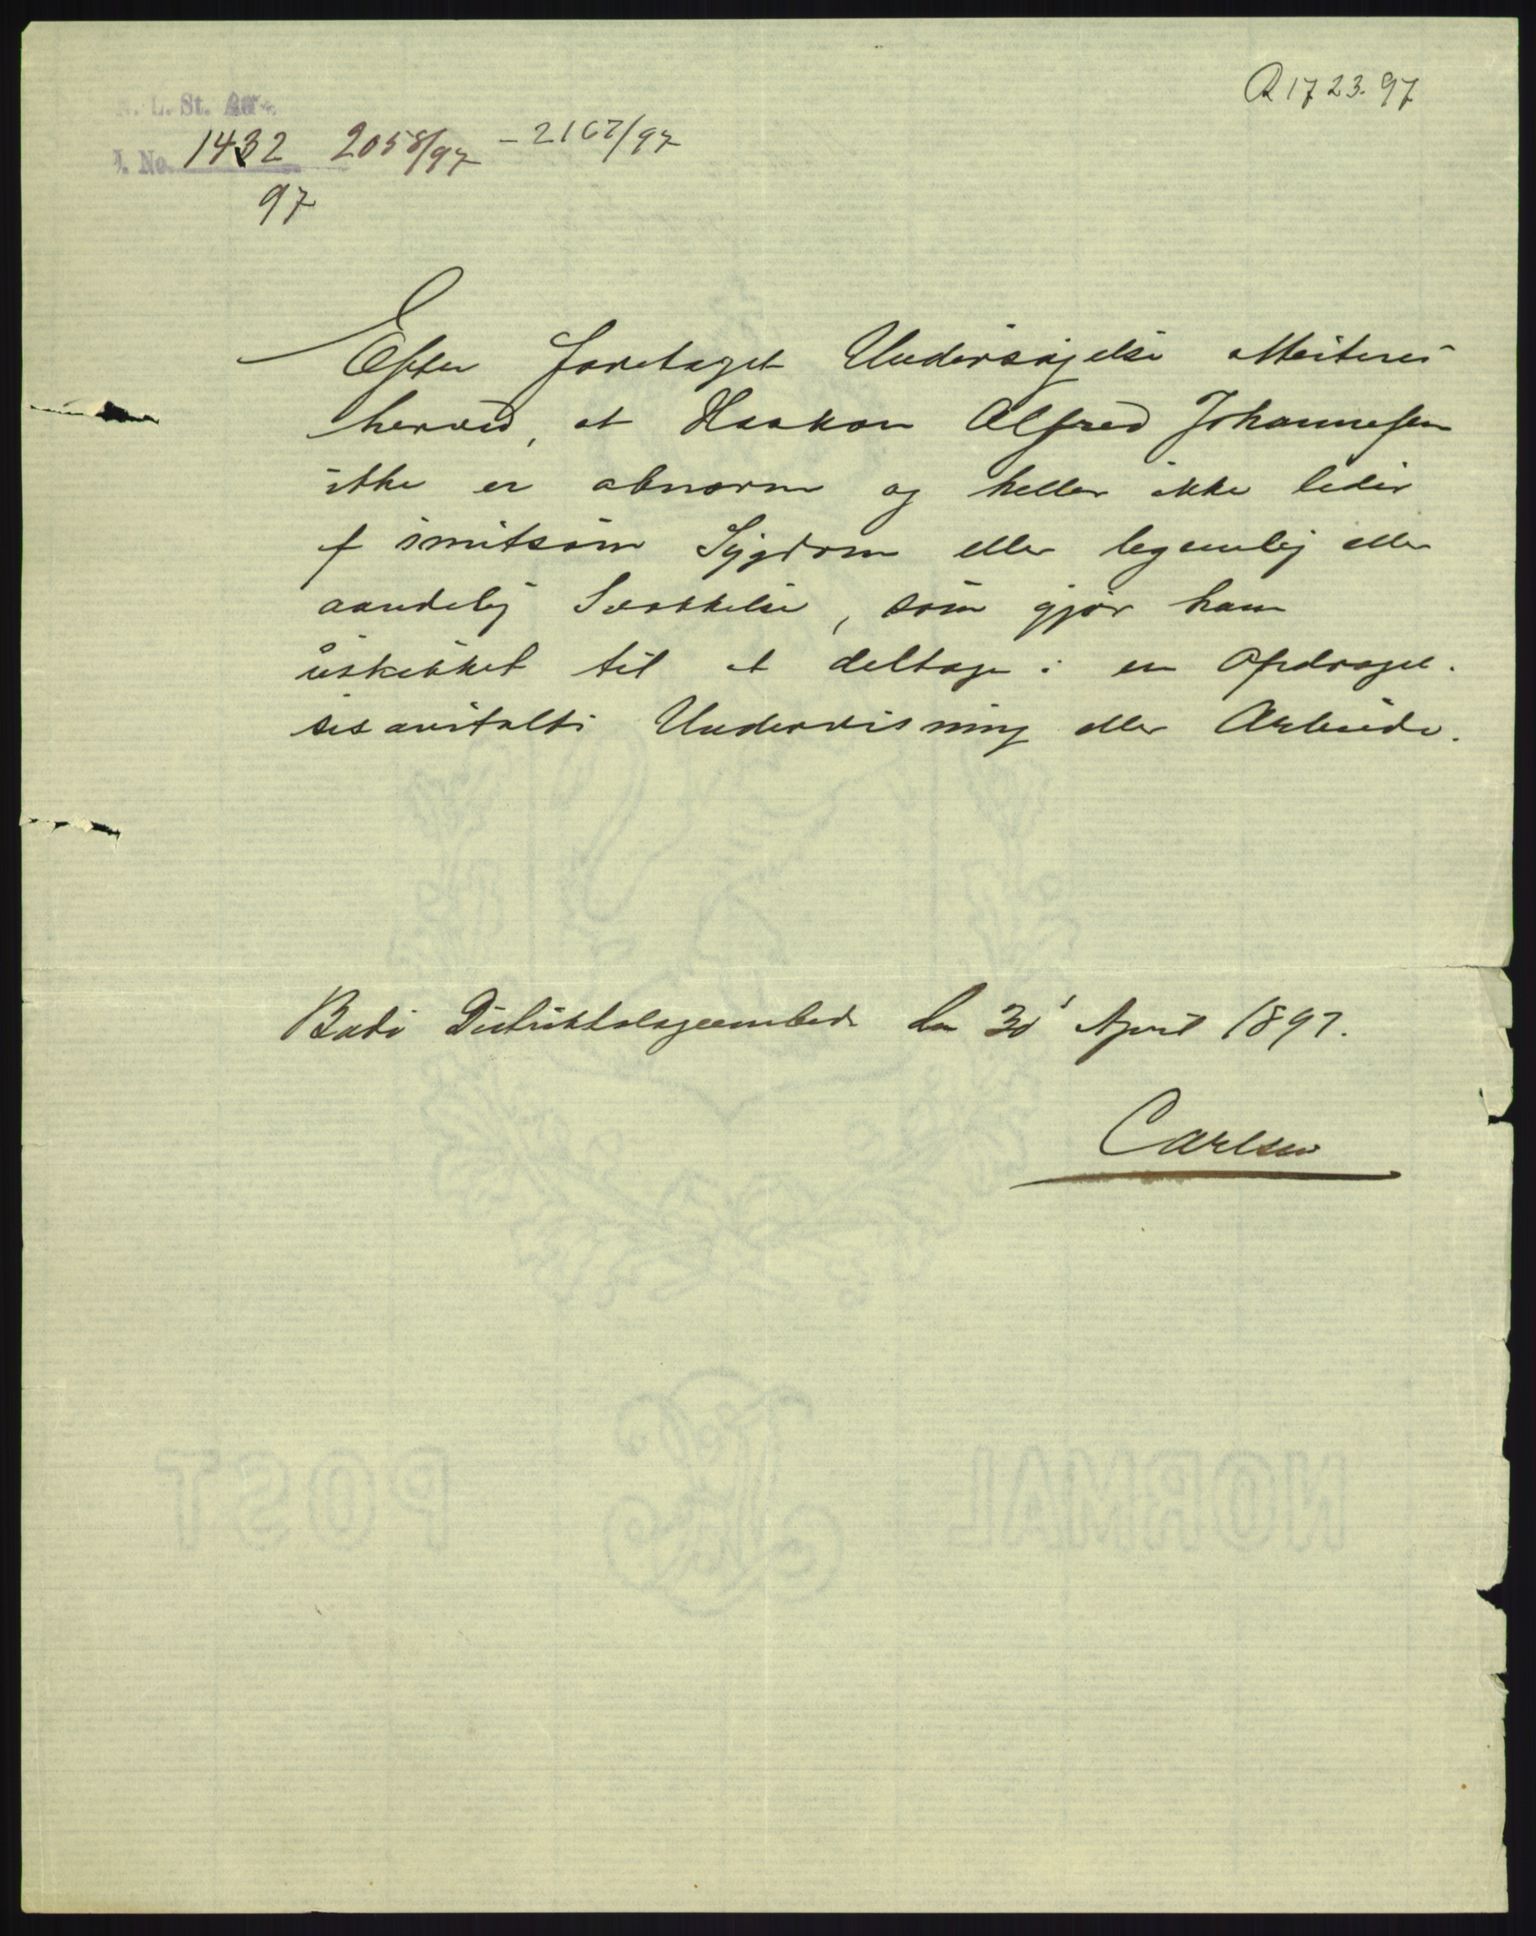 R 1723.97
N. L. St. Am.
J. No. 1432 2058/97 - 2167/97
97
Efter foretaget Undersøgelse attesteres
herved, at Haakon Alfred Johannesen
ikke er abnorm og heller ikke lider
af smitsom Sygdom eller legemlig eller
aandelig Svækkelse, som gjør ham
uskikket til at deltage i en Opdragel-
sesanstalts Undervisning eller Arbeide.
Bodø Distriktslægeembede den 30' April 1897.
Carlsen
NORMAL POST